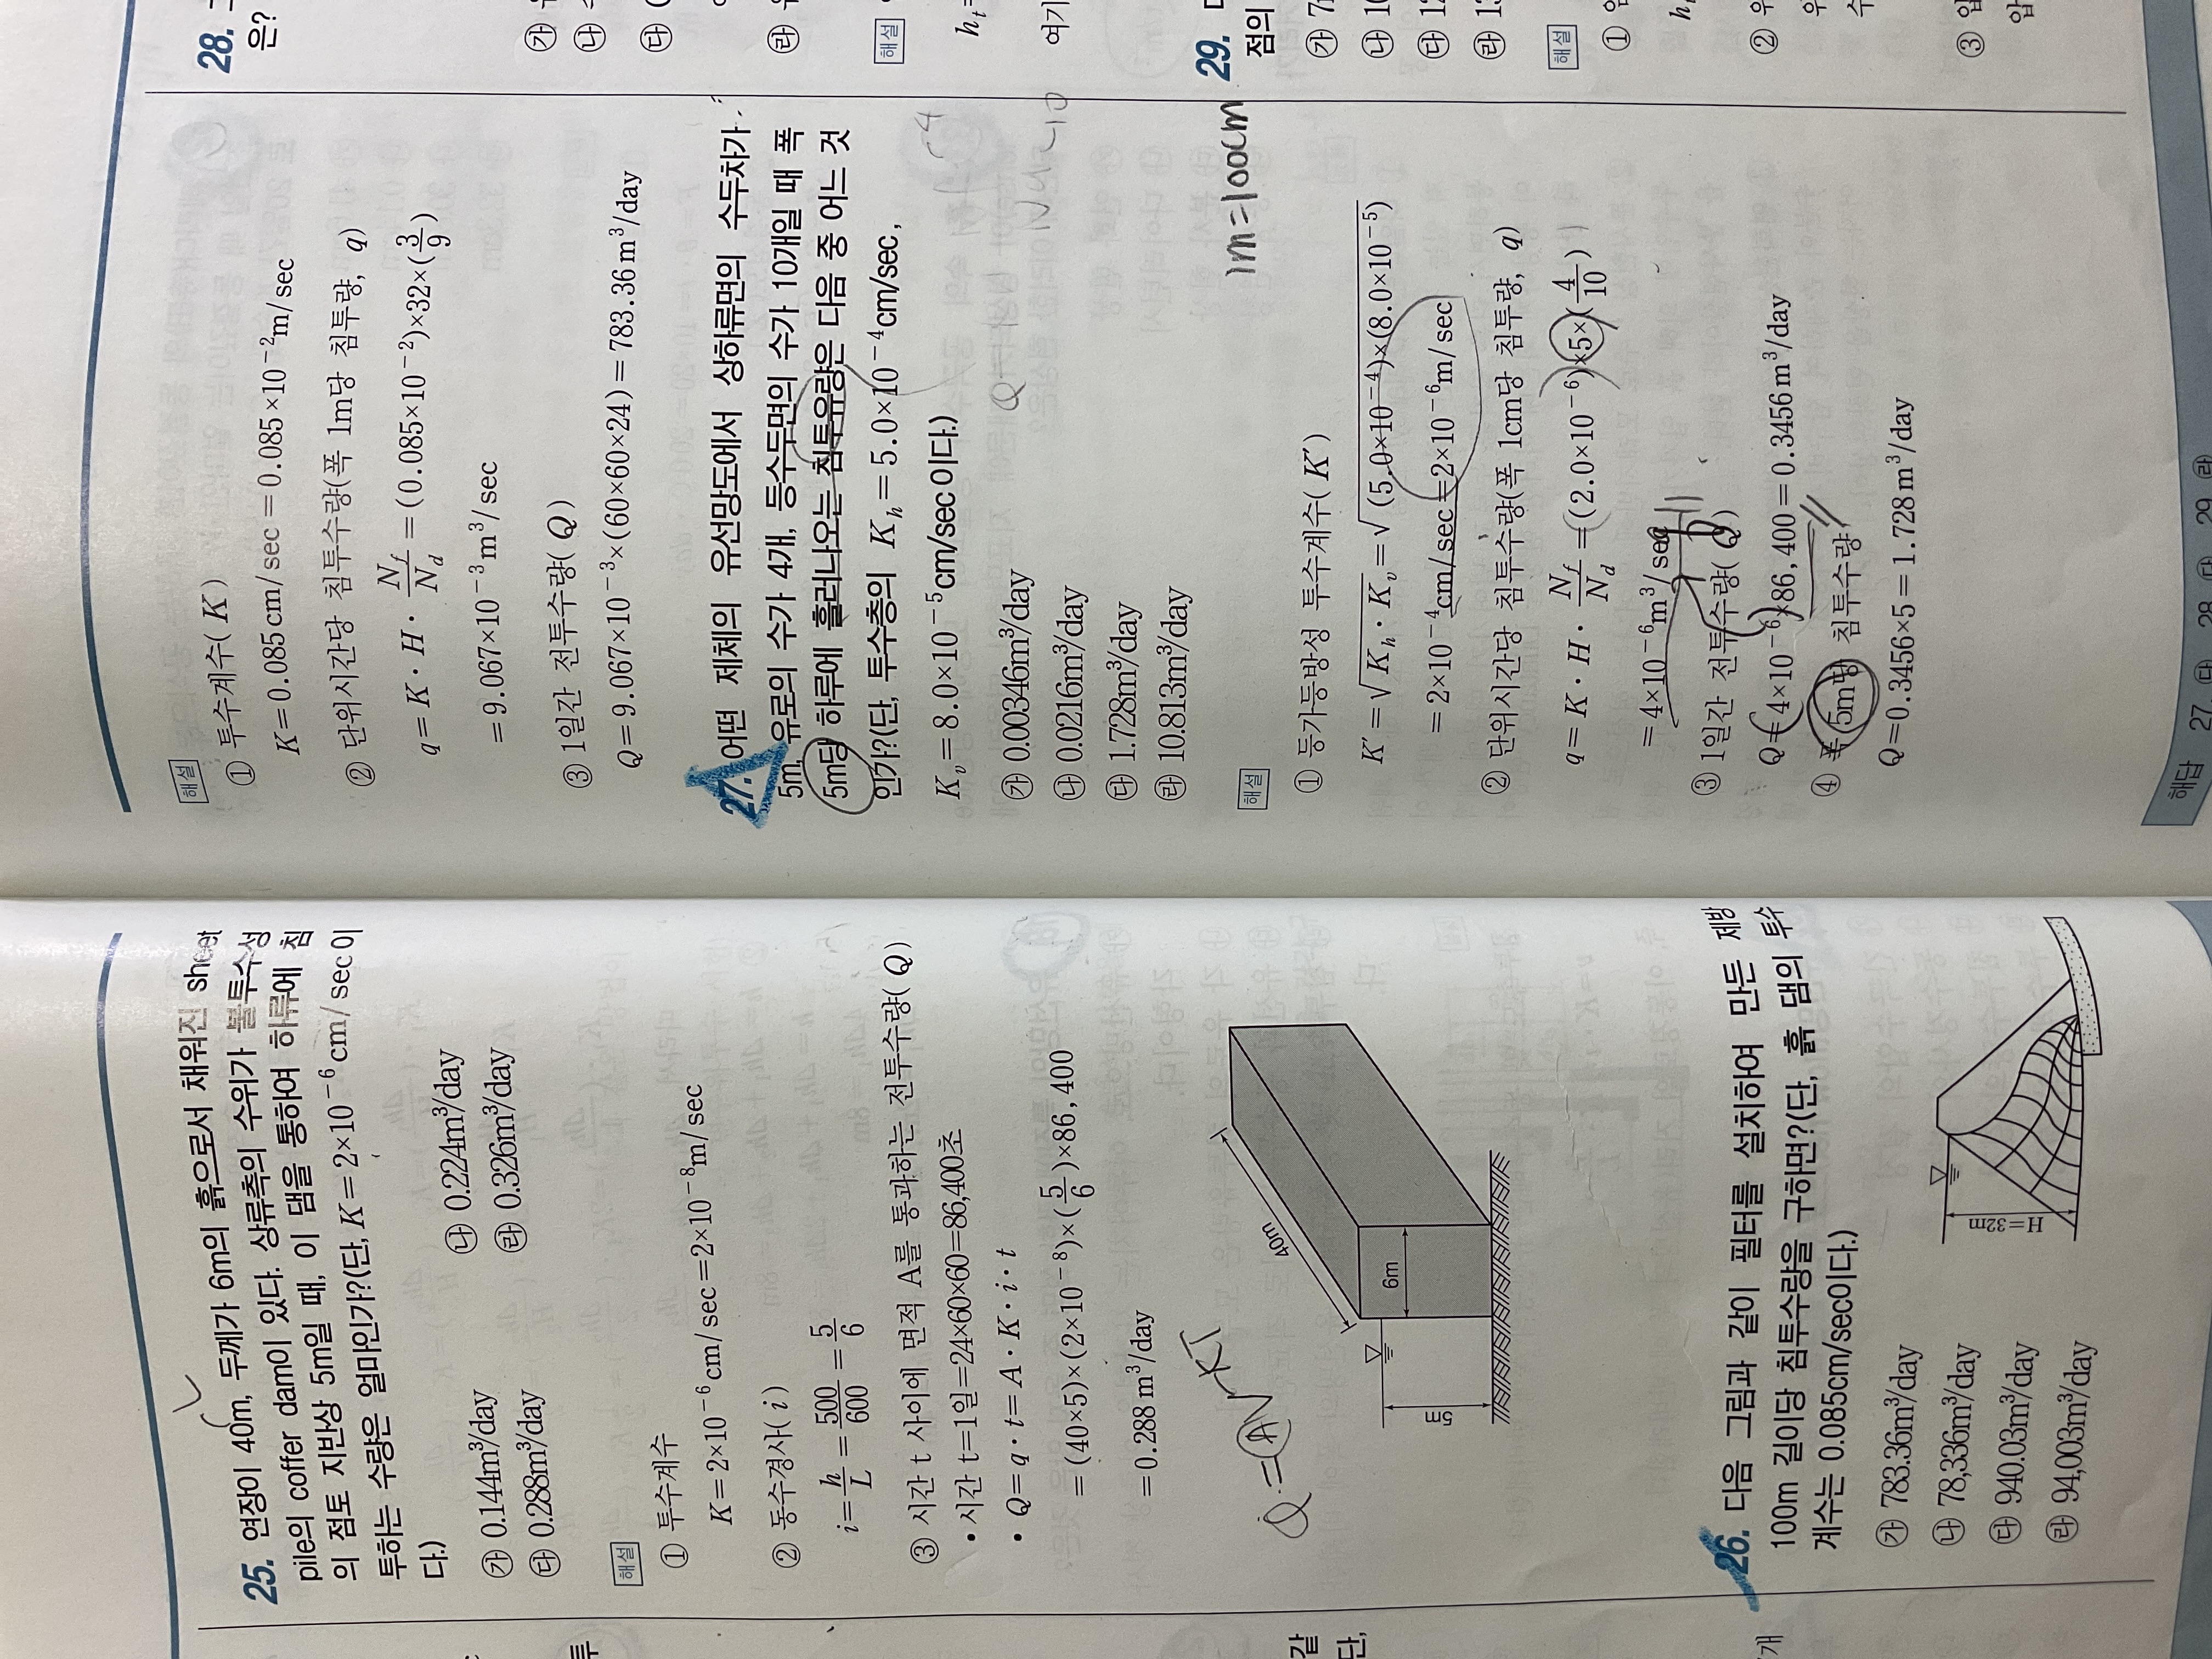 25. 연장이 40m, 두께가 6m의 흙으로서 채워진 sheet
pile의 coffer dam이 있다. 상류측의 수위가 불투수성
의 점토 지반상 5m일 때, 이 댐을 통하여 하루에 침
투하는 수량은 얼마인가?(단, K=2×10⁻⁶cm/sec이
다.)
㉮ 0.144m³/day ㉯ 0.224m³/day
㉰ 0.288m³/day ㉱ 0.326m³/day
해설
① 투수계수
K=2×10⁻⁶cm/sec=2×10⁻⁸m/sec
② 동수경사(i)
i=h/L=500/600=5/6
③ 시간 t 사이에 면적 A를 통과하는 전투수량(Q)
• 시간 t=1일=24×60×60=86,400초
• Q=q·t=A·K·i·t
=(40×5)×(2×10⁻⁸)×(5/6)×86,400
=0.288m³/day
40m
6m
5m
26. 다음 그림과 같이 필터를 설치하여 만든 제방
100m 길이당 침투수량을 구하면?(단, 흙 댐의 투수
계수는 0.085cm/sec이다.)
㉮ 783.36m³/day
㉯ 78,336m³/day
㉰ 940.03m³/day
㉱ 94,003m³/day
H=32m
해설
① 투수계수(K)
K=0.085cm/sec=0.085×10⁻²m/sec
② 단위시간당 침투수량(폭 1m당 침투량, q)
q=K·H·Nf/Nd=(0.085×10⁻²)×32×(3/9)
=9.067×10⁻³m³/sec
③ 1일간 전투수량(Q)
Q=9.067×10⁻³×(60×60×24)=783.36m³/day
27. 어떤 제체의 유선망도에서 상하류면의 수두차가
5m, 유로의 수가 4개, 등수두면의 수가 10개일 때 폭
5m당 하루에 흘러나오는 침투유량은 다음 중 어느 것
인가?(단, 투수층의 Kh=5.0×10⁻⁴cm/sec,
Kv=8.0×10⁻⁵cm/sec이다.)
㉮ 0.00346m³/day
㉯ 0.0216m³/day
㉰ 1.728m³/day
㉱ 10.813m³/day
1m=100cm
해설
① 등가등방성 투수계수(K′)
K′=√Kh·Kv=√(5.0×10⁻⁴)×(8.0×10⁻⁵)
=2×10⁻⁴cm/sec=2×10⁻⁶m/sec
② 단위시간당 침투수량(폭 1cm당 침투량, q)
q=K·H·Nf/Nd=(2.0×10⁻⁶)×5×(4/10)
=4×10⁻⁶m³/sec
③ 1일간 전투수량(Q)
Q=(4×10⁻⁶)×86,400=0.3456m³/day
④ 폭 5m당 침투수량
Q=0.3456×5=1.728m³/day
28.
은?
㉮
㉯
㉰
㉱
해설
ht=
여기
29.
점의
㉮
㉯
㉰
㉱
해설
①
②
③
해답 27 ㉰ 28 ㉰ 29 ㉱